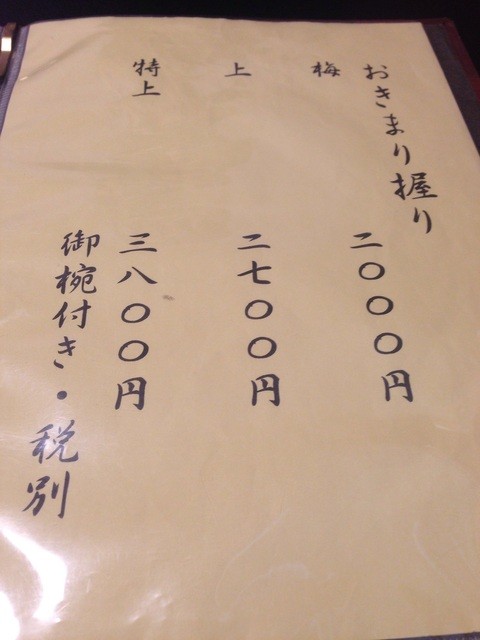 おきまり握り
梅 二〇〇〇円
上 二七〇〇円
特上 三八〇〇円
御椀付き・税別